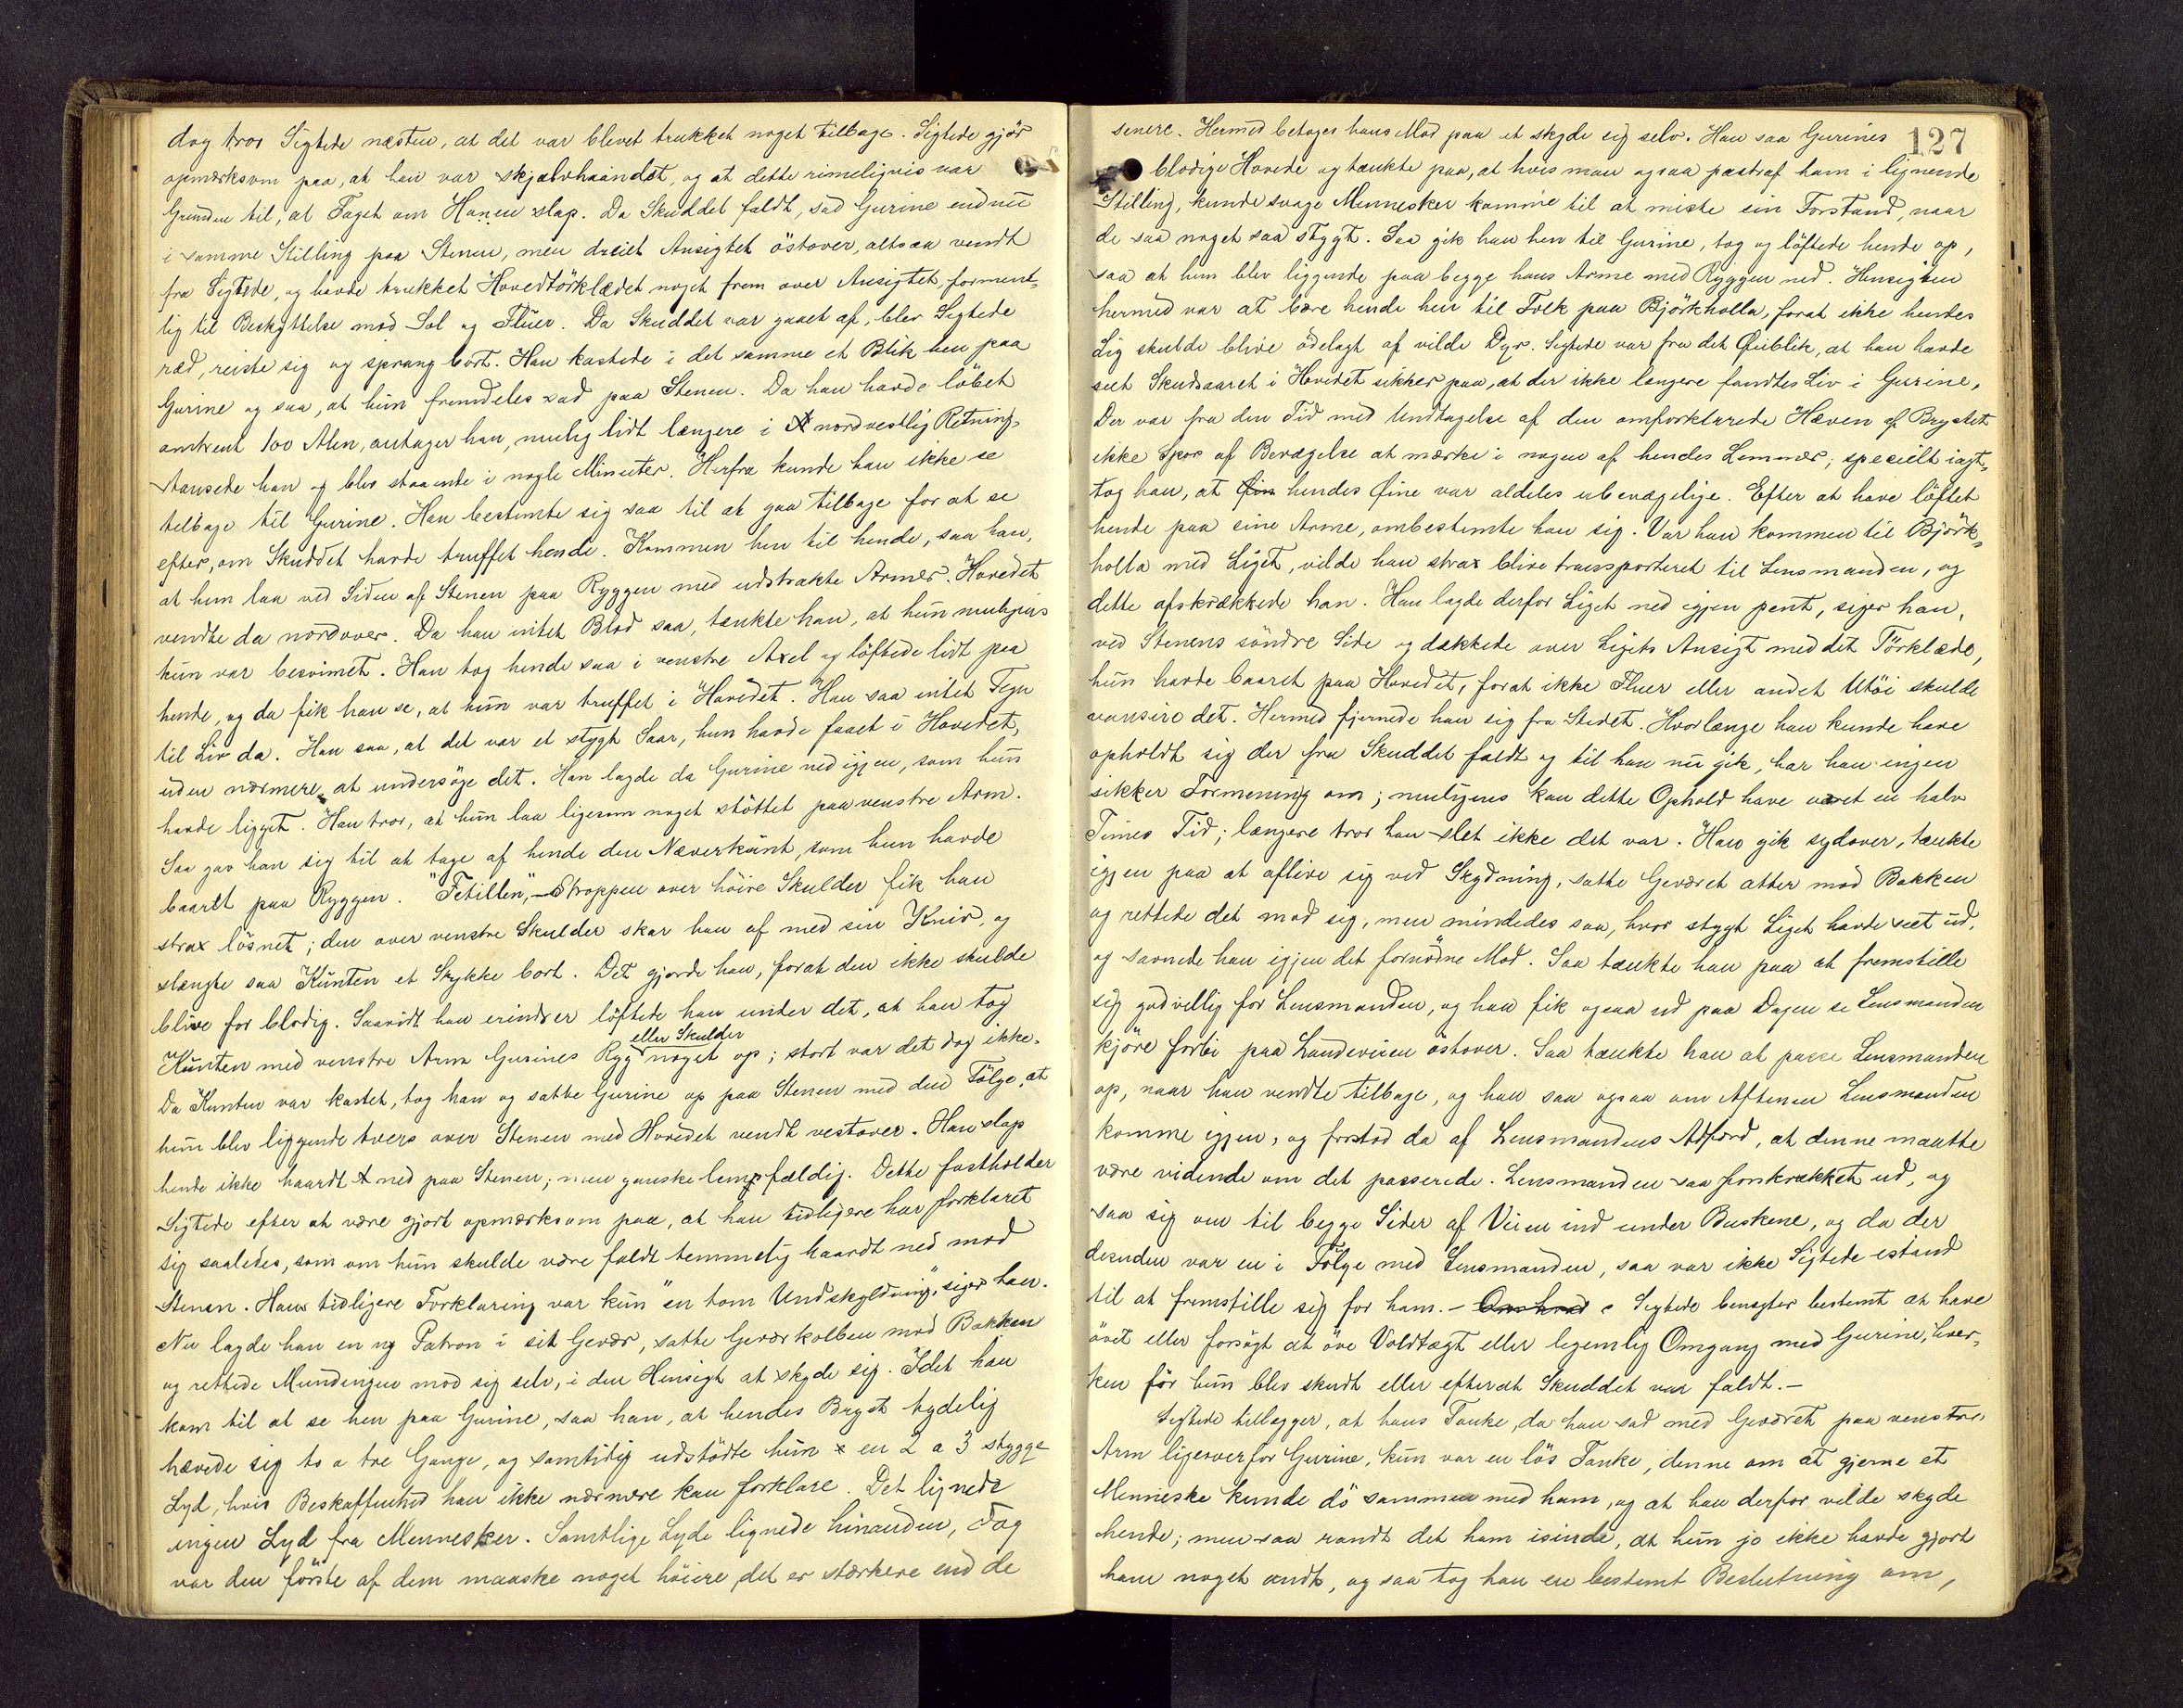 dog tror Sigtede næsten, at det var blevet trukket noget tilbage. Sigtede gjör
opmærksom paa, at han var skjælvhaandet, og at dette rimeligvis var
Grunden til, at Taget om Hanen slap. Da Skuddet faldt, sad Gurine endnu
i samme Stilling paa Stenen, men dreiet Ansigtet östover, altsaa vendt
fra Sigtede, og havde trukket Hovedtörklædet noget frem over Ansigtet, forment-
lig til Beskyttelse mod Sol og Fluer. Da Skuddet var gaaet af, blev Sigtede
ræd, reiste sig og sprang bort. Han kastede i det samme et Blik hen paa
Gurine og saa, at hun fremdeles sad paa Stenen. Da han havde löbet
omtrent 100 Alen, antager han, mulig lidt længere i nordvestlig Retning,
stansede han og blev staaende i nogle Minuter. Herfra kunde han ikke se
tilbage til Gurine. Han bestemte sig saa til at gaa tilbage for at se
efter, om Skuddet havde truffet hende. Kommen hen til hende, saa han,
at hun laa ved Siden af Stenen paa Ryggen med udstrakte Armer. Hovedet
vendte da nordover. Da han intet Blod saa, tænkte han, at hun muligvis
kun var besvimet. Han tog hende saa i venstre Axel og löftede lidt paa
hende, og da fik han se, at hun var truffet i Hovedet. Han saa intet Tegn
til Liv da. Han saa, at det var et stygt Saar, hun havde faaet i Hovedet,
uden nærmere at undersöge det. Han lagde da Gurine ned igjen, som hun
havde ligget. Han tror, at hun laa ligesom noget stöttet paa venstre Arm.
Saa gav han sig til at tage af hende den Næverkunt, som hun havde
baaret paa Ryggen. "Fetillen", - Stroppen over höire Skulder fik han
strax lösnet; den over venstre Skulder skar han af med sin Kniv, og
slængte saa Kunten et Stykke bort. Det gjorde han, forat den ikke skulde
blive for blodig. Saavidt han erindrer löftede han under det, at han tog
eller Skulder
Kunten med venstre Arm Gurines Ryg noget op; stort var det dog ikke.
Da Kunten var kastet, tog han og satte Gurine op paa Stenen med den Fölge, at
hun blev liggende tvers over Stenen med Hovedet vendt vestover. Han slap
hende ikke haardt ned paa Stenen; men ganske lempfældig. Dette fastholder
Sigtede efter at være gjort opmærksom paa, at han tidligere har forklaret
sig saaledes, som om hun skulde være faldt temmelig haardt ned mod
Stenen. Hans tidligere Forklaring var kun "en tom Undskyldning", siger han.
Nu lagde han en ny Patron i sit Gevær, satte Geværkolben mod Bakken
og rettede Mundingen mod sig selv, i den Hensigt at skyde sig. Idet han
kom til at se hen paa Gurine, saa han, at hendes Bryst tydelig
hævede sig to a tre Gange, og samtidig udstödte hun en 2 a 3 stygge
Lyd, hvis Beskaffenhed han ikke nærmere kan forklare. Det lignede
ingen Lyd fra Mennesker. Samtlige Lyde lignede hinanden, dog
var den förste af dem maaske noget höiere, det er stærkere end de
127
senere. Hermed betoges hans Mod paa at skyde sig selv. Han saa Gurines
blodige Hovede og tænkte paa, at hvis man ogsaa paatraf ham i lignende
Stilling, kunde svage Mennesker komme til at miste sin Forstand, naar
de saa noget saa stygt. Saa gik han hen til Gurine, tog og löftede hende op,
saa at hun blev liggende paa begge hans Arme med Ryggen ned. Hensigten
hermed var at bære hende hen til Folk paa Björkholla, forat ikke hendes
Lig skulde blive ödelagt af vilde Dyr. Sigtede var fra det Øieblik, at han havde
seet Skudsaaret i Hovedet sikker paa, at der ikke længere fandtes Liv i Gurine.
Der var fra den Tid med Undtagelse af den omforklarede Hæven af Brystet
ikke Spor af Bevægelse at mærke i nogen af hendes Lemmer; specielt iagt-
tog han, at Øin hendes Øine var aldeles ubevægelige. Efter at have löftet
hende paa sine Arme, ombestemte han sig. Var han kommen til Björk-
holla med Liget, vilde han strax blive transporteret til Lensmanden, og
dette afskrækkede han. Han lagde derfor Liget ned igjen pent, siger han,
ved Stenens söndre Side og dækkede over Ligets Ansigt med det Törklæde,
hun havde baaret paa Hovedet, forat ikke Fluer eller andet Utöi skulde
vansire det. Hermed fjernede han sig fra Stedet. Hvorlænge han kunde have
opholdt sig der fra Skuddet faldt og til han nu gik, har han ingen
sikker Formening om; muligens kan dette Ophold have været en halv
Times Tid; længere tror han slet ikke det var. Han gik sydover, tænkte
igjen paa at aflive sig ved Skydning, satte Geværet atter mod Bakken
og rettede det mod sig, men mindedes saa, hvor stygt Liget havde seet ud,
og savnede han igjen det fornödne Mod. Saa tænkte han paa at fremstille
sig godvillig for Lensmanden, og han fik ogsaa ud paa Dagen se Lensmanden
kjöre forbi paa Landeveien östover. Saa tænkte han at passe Lensmanden
op, naar han vendte tilbage, og han saa ogsaa om Aftenen Lensmanden
komme igjen, og forstod da af Lensmandens Adfærd, at denne maatte
være vidende om det passerede. Lensmanden saa forskrækket ud, og
saa sig om til begge Sider af Veien ind under Buskene, og da der
desuden var en i Fölge med Lensmanden, saa var ikke Sigtede istand
til at fremstille sig for ham. - Omhvad Sigtede benegter bestemt at have
övet eller forsögt at öve Voldtægt eller legemlig Omgang med Gurine, hver-
ken för hun blev skudt eller efterat Skuddet var faldt. -
Sigtede tillægger, at hans Tanke, da han sad med Geværet paa venstre
Arm ligeoverfor Gurine, kun var en lös Tanke, denne om at gjerne et
Menneske kunde dö sammen med ham, og at han derfor vilde skyde
hende; men saa randt det ham isinde, at hun jo ikke havde gjort
ham noget ondt, og saa tog han en bestemt Beslutning om,